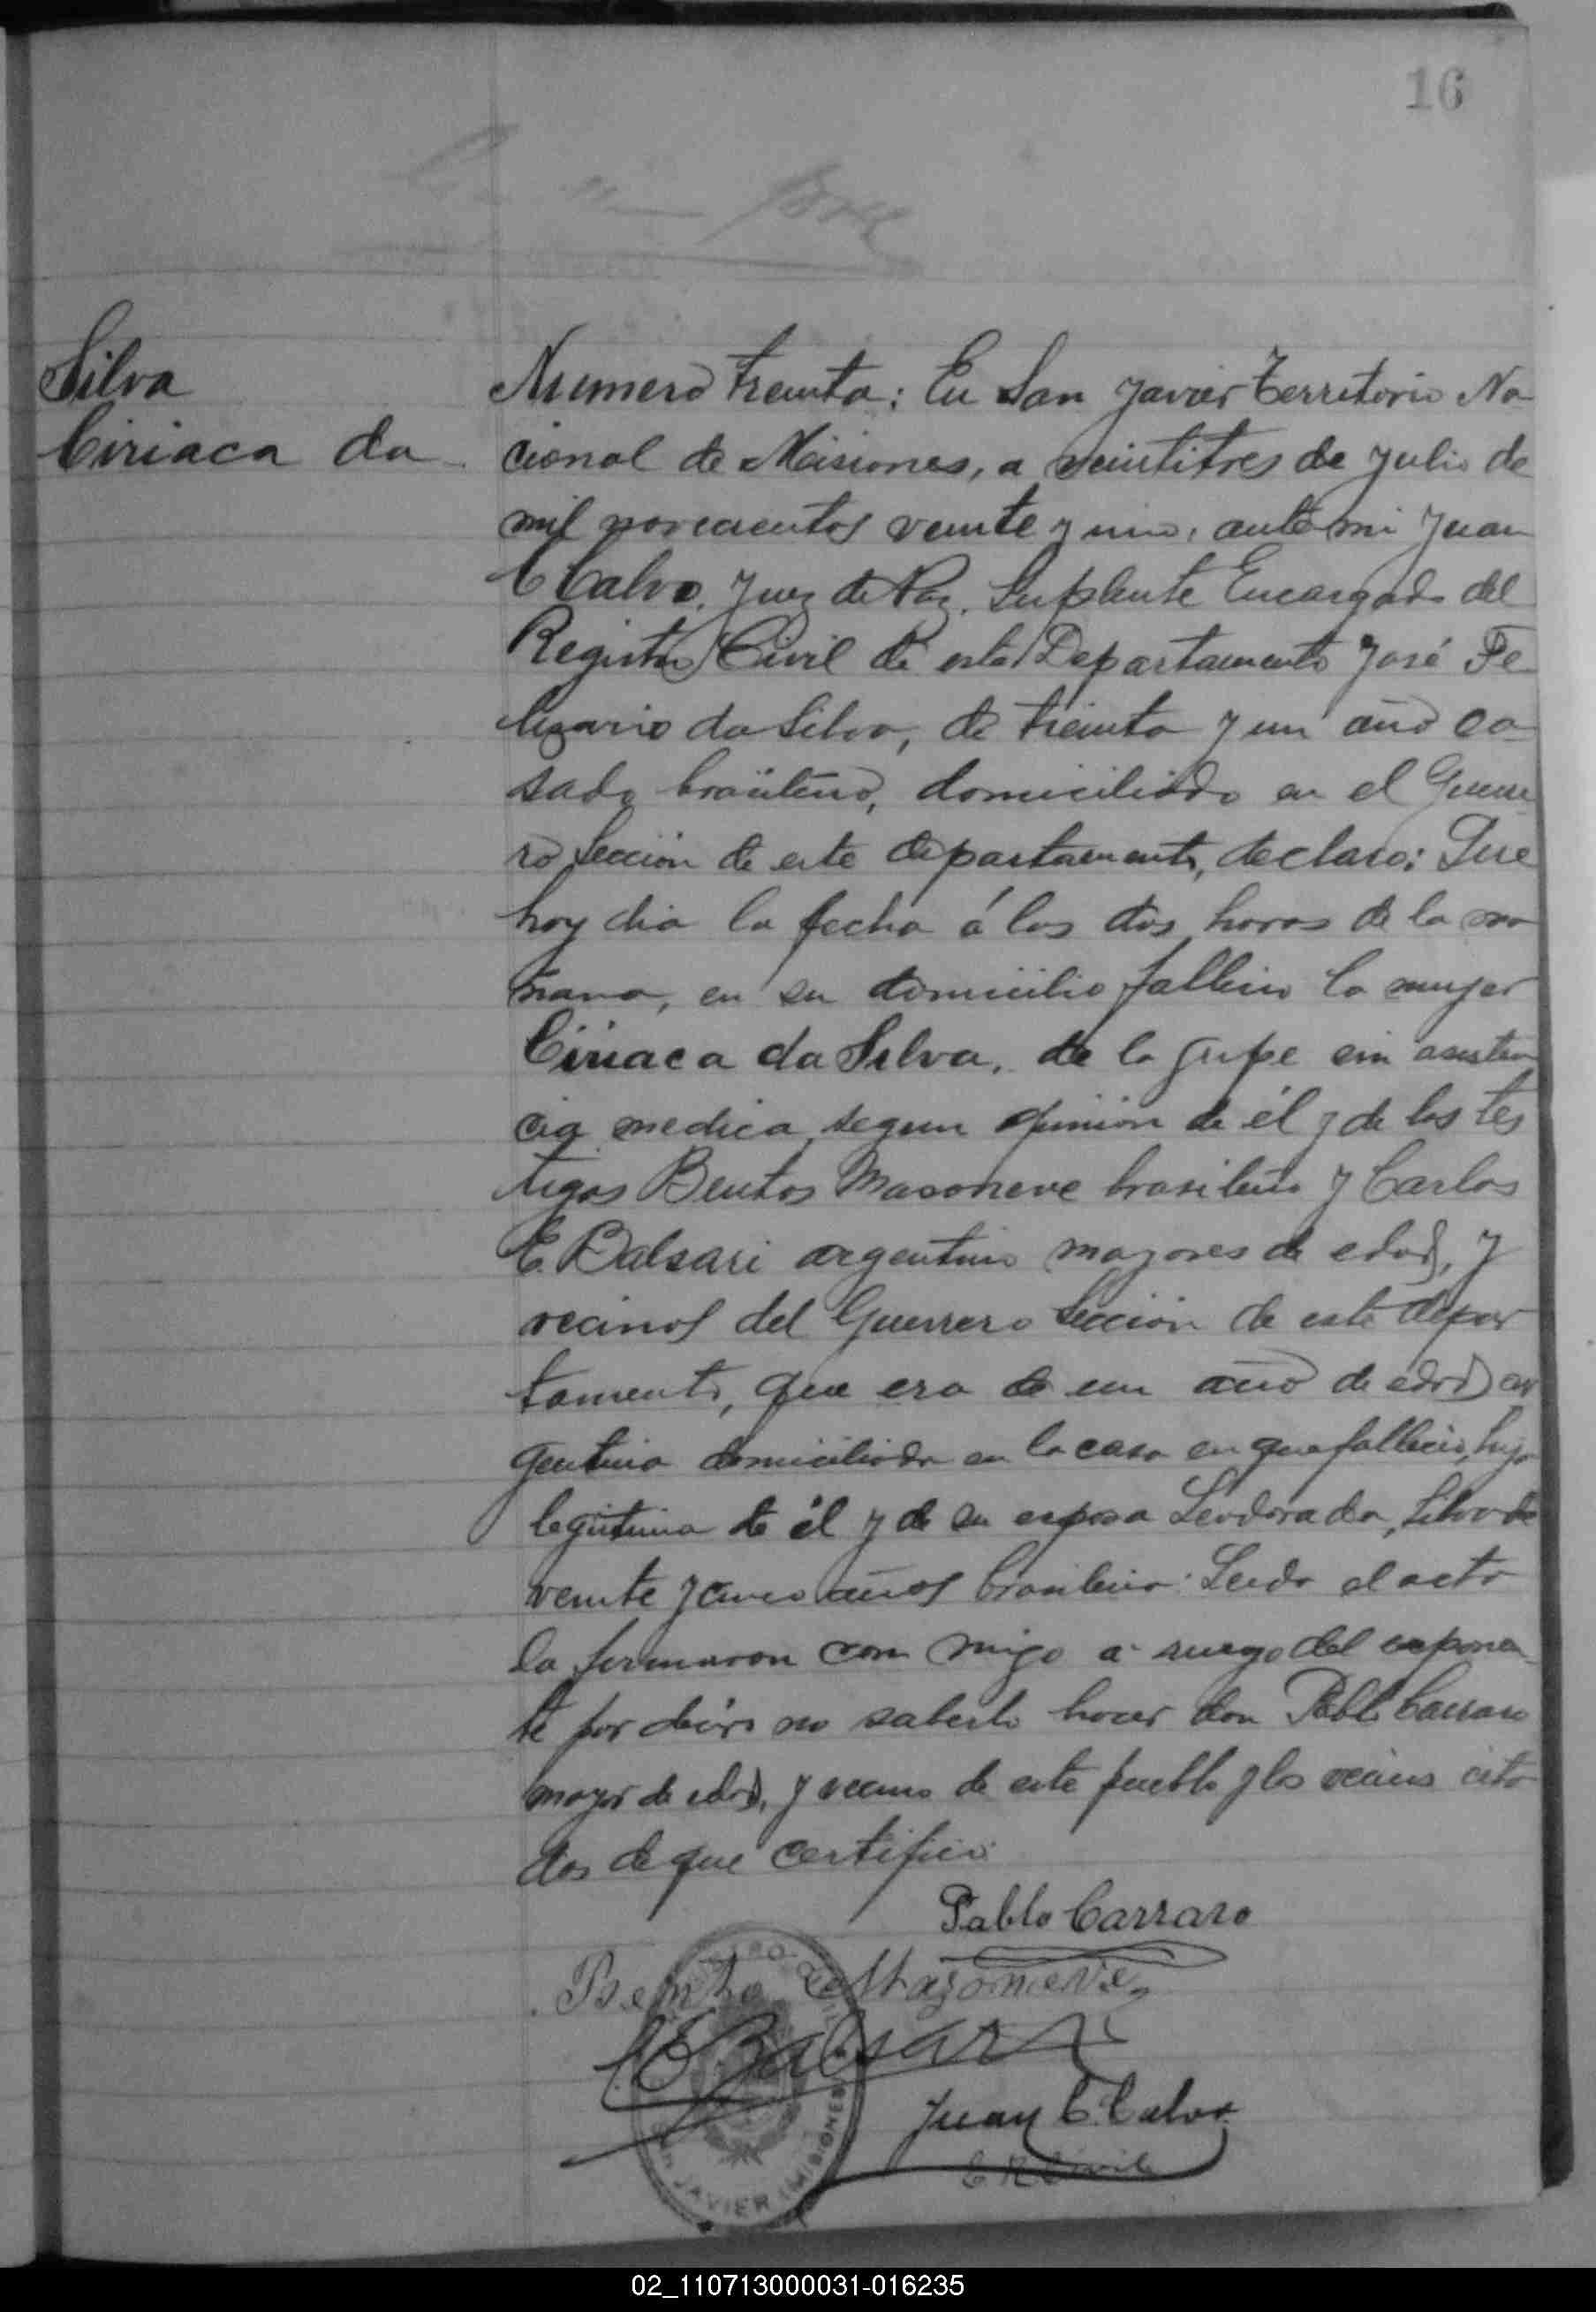 16
Silva
Ciriaca da
Numero treinta: En San Javier Territorio Na
cional de Misiones, a veintitres de Julio de
mil novecientos veinte y uno, ante mi Juan
C Calvo, Juez de Paz, Suplente Encargado del
Registro Civil de este Departamento José Fe
lizario da Silva, de treinta y un año ca
sado brasileño, domiciliado en el Guerre
ro Sección de este departamento, declaro: Que
hoy dia la fecha á las dos horas de la ma
ñana, en su domicilio fallecio la mujer
Ciriaca da Silva, de la gripe sin asisten
cia medica, segun opinión de él y de los tes
tigos Bentos Masoneve brasileño y Carlos
E. Balsari argentino mayores de edad, y
vecinos del Guerrero Sección de este depar
tamento, que era de un año de edad ar
gentina domiciliada en la casa en que fallecio, hija
legitima de él y de su esposa Leodora da Silva de
veinte y cinco años brasilera: Leida el acta
la firmaron con migo a ruego del exponen
te por decir no saberlo hacer don Pablo Carraro
mayor de edad, y vecino de este pueblo y los vecinos cita
dos de que certifico.
Pablo Carraro
Bento Masoneve
C E Balsari
Juan C. Calvo
E. R. Civil
SAN JAVIER (MISIONES)
02_110713000031-016235